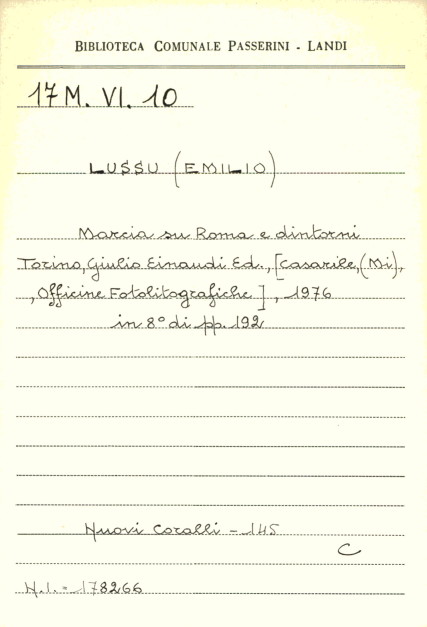 BIBLIOTECA COMUNALE PASSERINI - LANDI
17 M. VI. 10
LUSSU (EMILIO)
Marcia su Roma e dintorni
Torino, Giulio Einaudi Ed., [Casarile, (Mi),
, Officine Fotolitografiche], 1976
in 8° di pp. 192
Nuovi Coralli - 145
C
N.I. = 178266